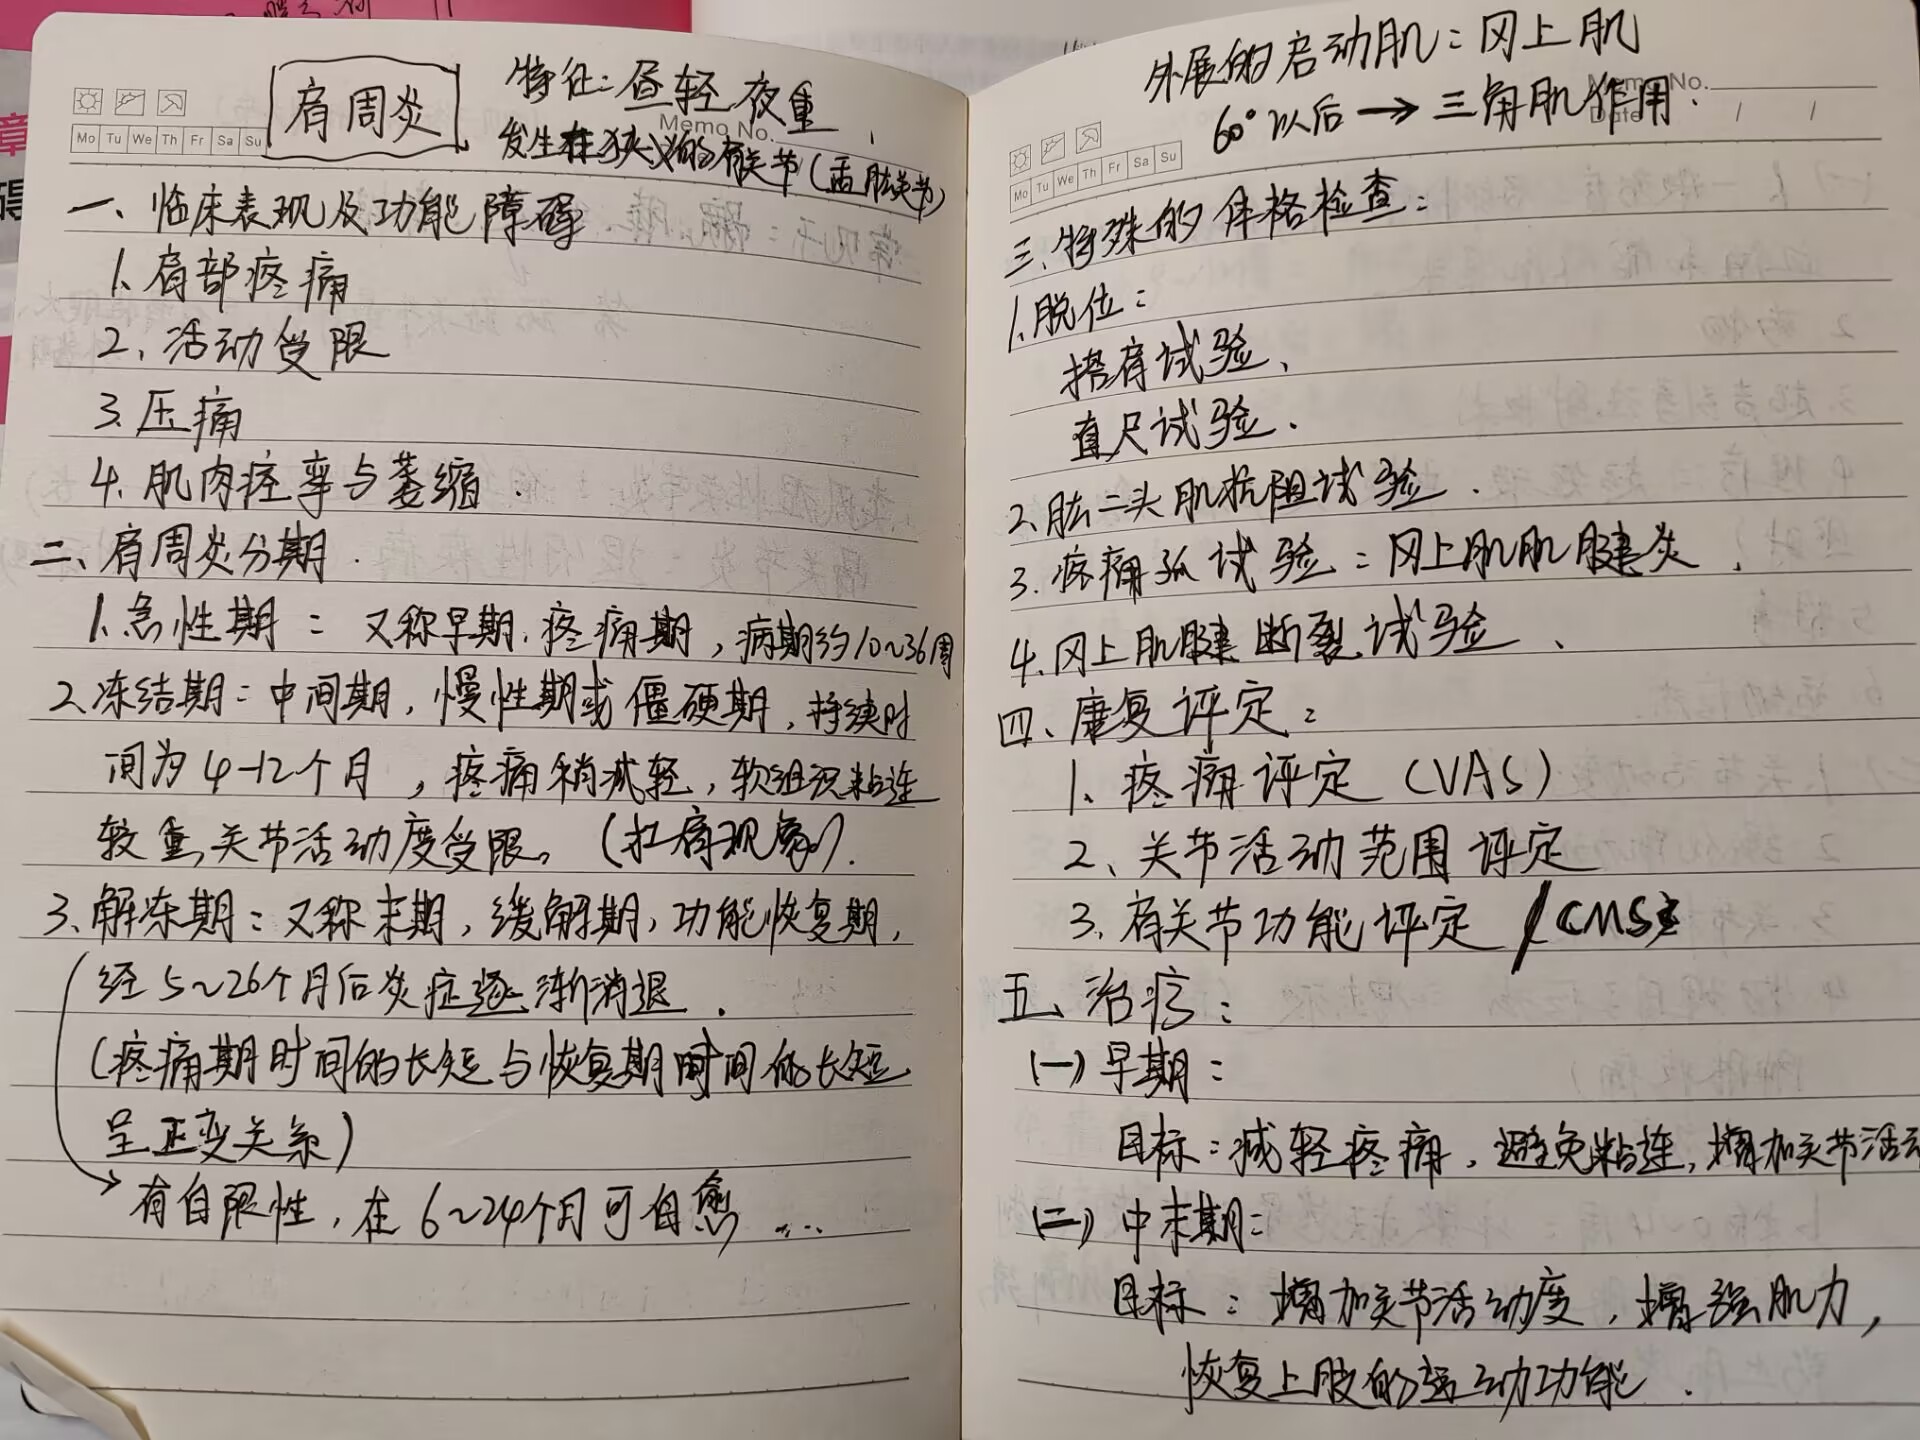 肩周炎
特征：昼轻夜重
发生在狭义的肩关节(盂肱关节)
Memo No.
Mo Tu We Th Fr Sa Su
一、临床表现及功能障碍
1.肩部疼痛
2.活动受限
3.压痛
4.肌肉痉挛与萎缩.
二、肩周炎分期.
1.急性期：又称早期.疼痛期，病期约10~36周
2.冻结期：中间期，慢性期或僵硬期，持续时
间为4-12个月，疼痛稍减轻，软组织粘连
较重，关节活动度受限。(扛肩现象).
3.解冻期：又称末期，缓解期，功能恢复期，
经5~26个月后炎症逐渐消退.
(疼痛期时间的长短与恢复期时间的长短
呈正变关系)
→有自限性，在6~24个月可自愈.....
外展的启动肌：冈上肌
60°以后→三角肌作用.
Memo No.
Date / /
Mo Tu We Th Fr Sa Su
三、特殊的体格检查：
1.脱位：
搭肩试验、
直尺试验.
2.肱二头肌抗阻试验.
3.疼痛弧试验：冈上肌肌腱炎.
4.冈上肌腱断裂试验、
四、康复评定：
1、疼痛评定(VAS)
2、关节活动范围评定
3.肩关节功能评定/CMS
五、治疗：
(一)早期：
目标：减轻疼痛，避免粘连，增加关节活动
(二)中末期：
目标：增加关节活动度，增强肌力，
恢复上肢的运动功能.